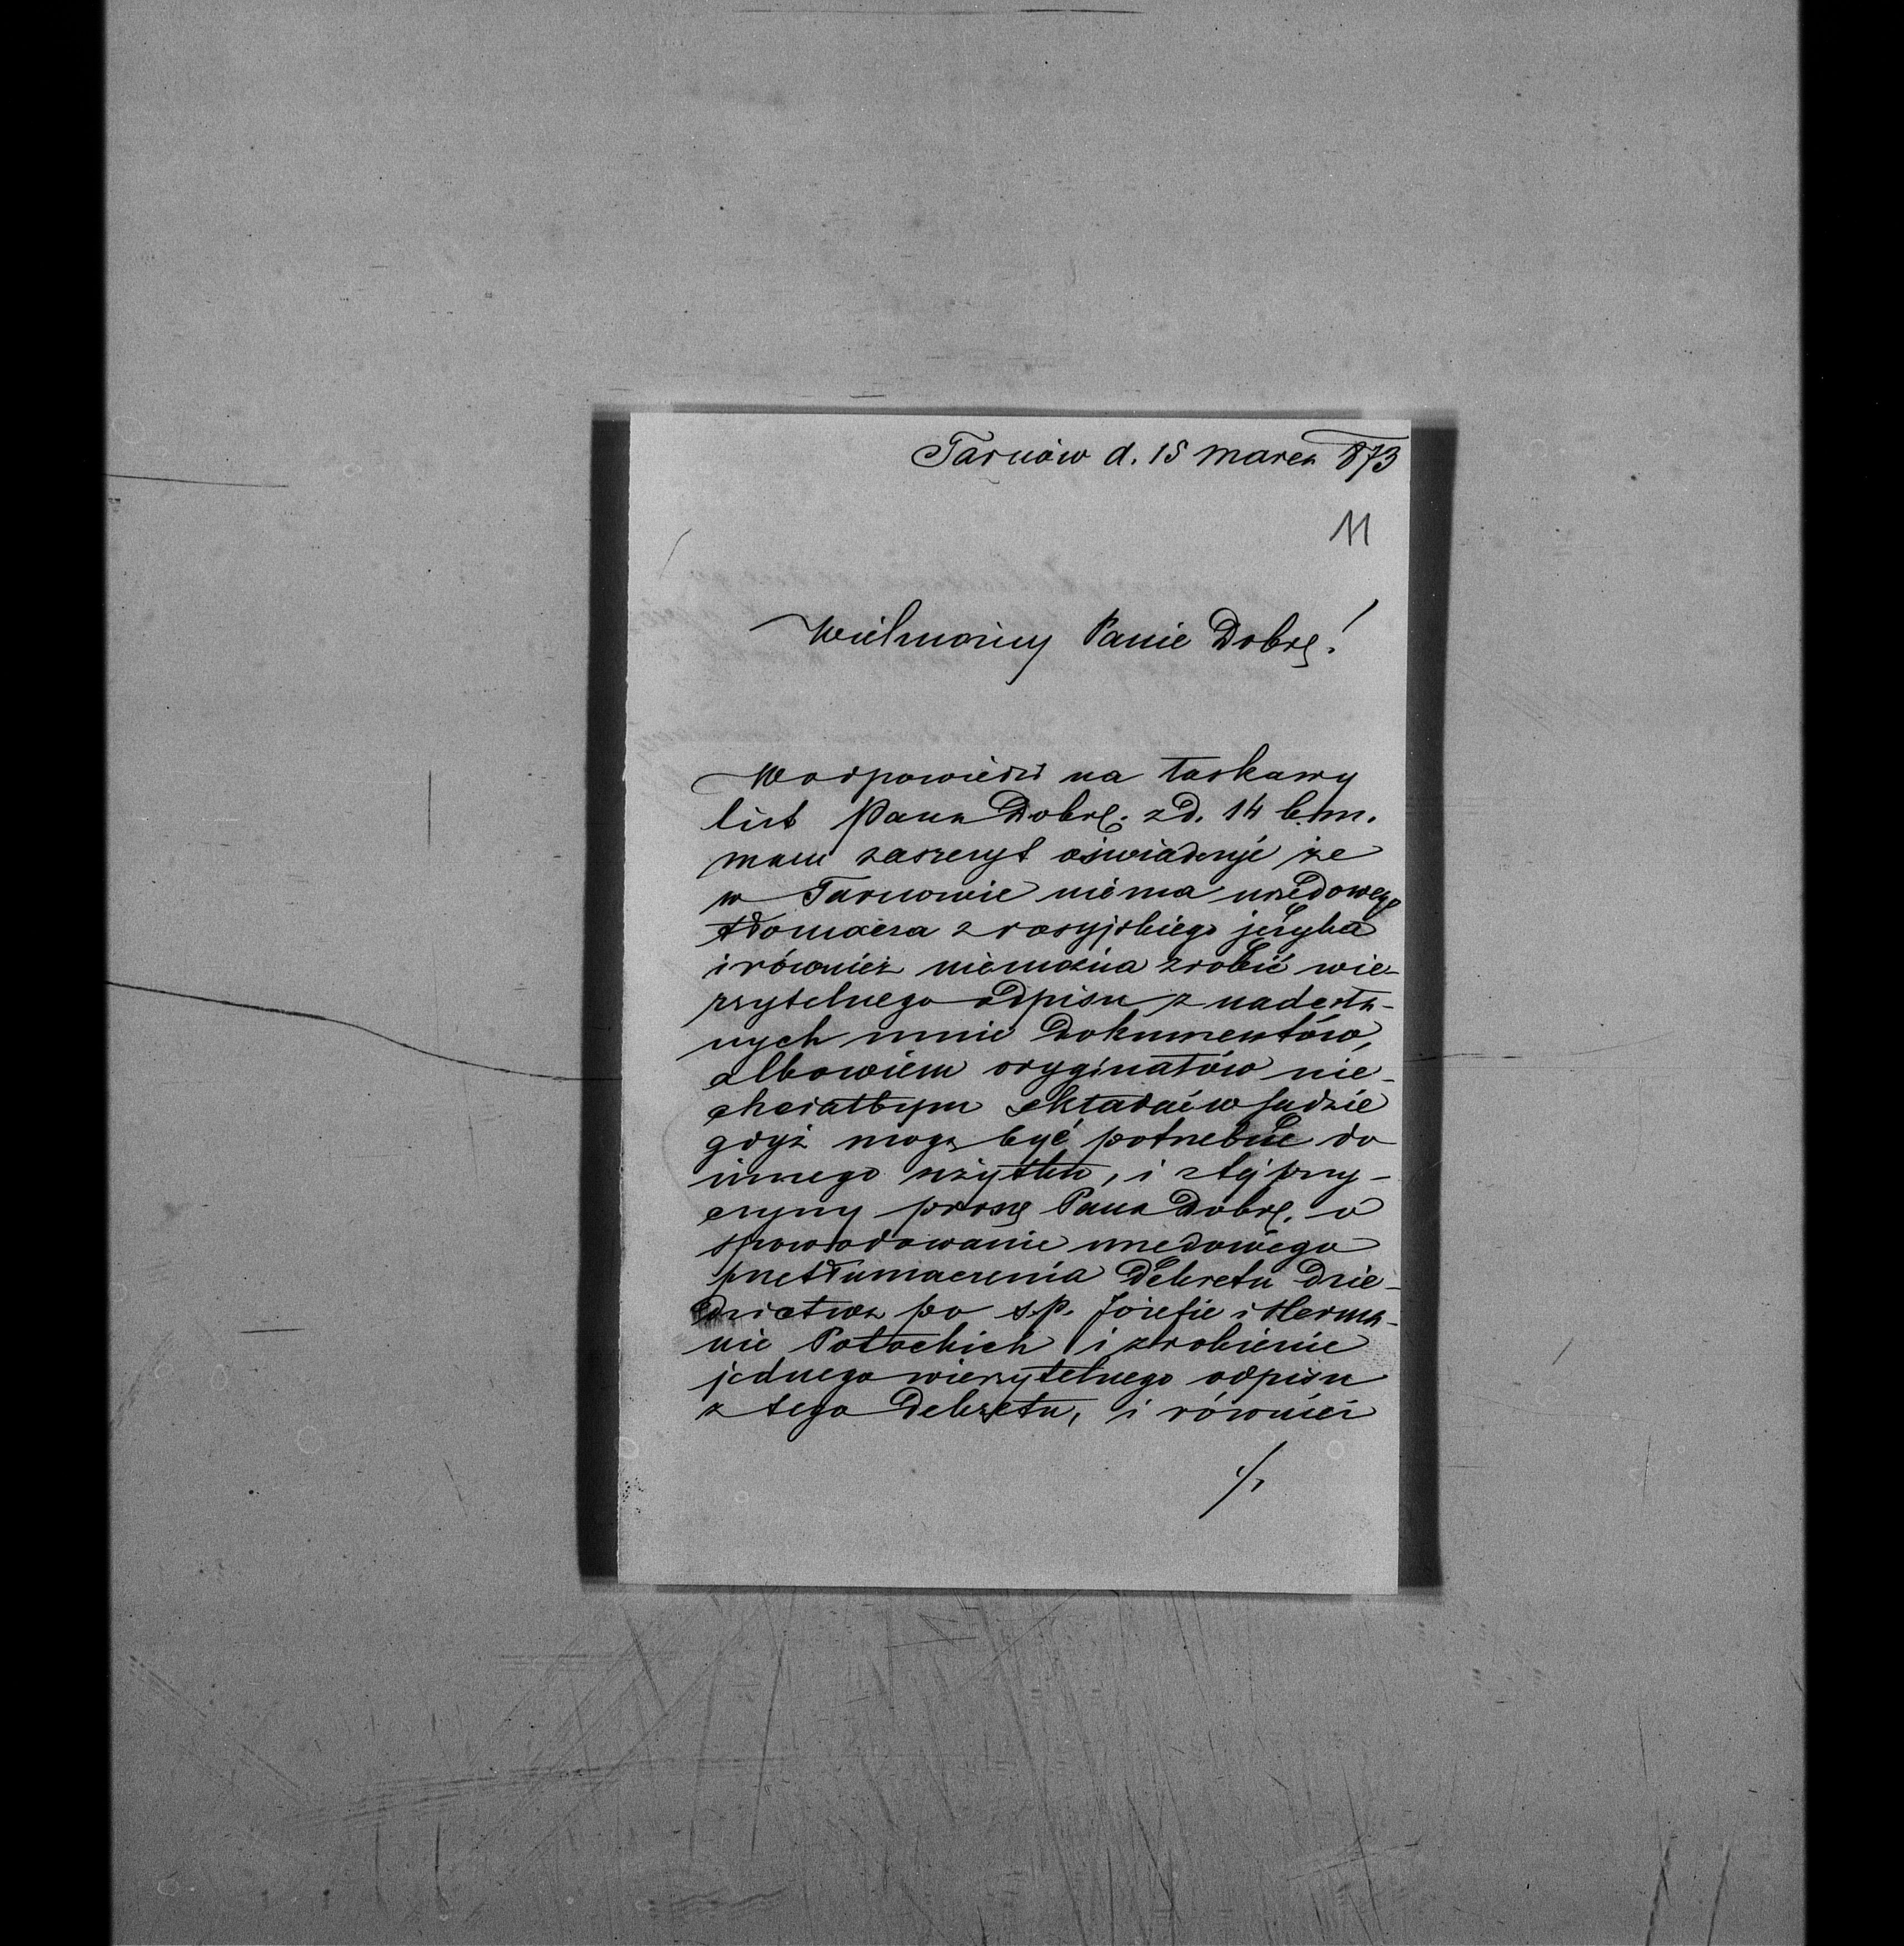 Tarnów d. 15 marca 873
11
Wielmożny Panie Dobrę!
W odpowiedzi na łaskawy
list Pana Dobrę. z d. 14 b.m.
mam zaszczyt oświadczyć że
w Tarnowie niema urzędowego
tłomacza z rosyjskiego języka
i również niemożna zrobić wie-
rzytelnego odpisu z nadesła-
nych mnie dokumentów,
albowiem oryginałów nie-
chciałbym składać w sądzie
gdyż mogą być potrzebne do
innego użytku, i z tej przy-
czyny proszę Pana Dobrę. o
spowodowanie urzędowego
przetłumaczenia Dekretu Dzie-
dzictwa po ś.p. Józefie i Herma-
nie Potockich i zrobienie
jednego wierzytelnego odpisu
z tego Dekretu, i również
./.